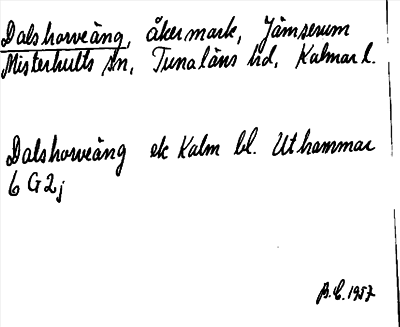 Dalshorveäng, åkermark, Jämserum
Misterhults sn, Tunaläns hd, Kalmar l.
Dalshorveäng ek Kalm bl. Uthammar
6 G2j
B.E. 1957